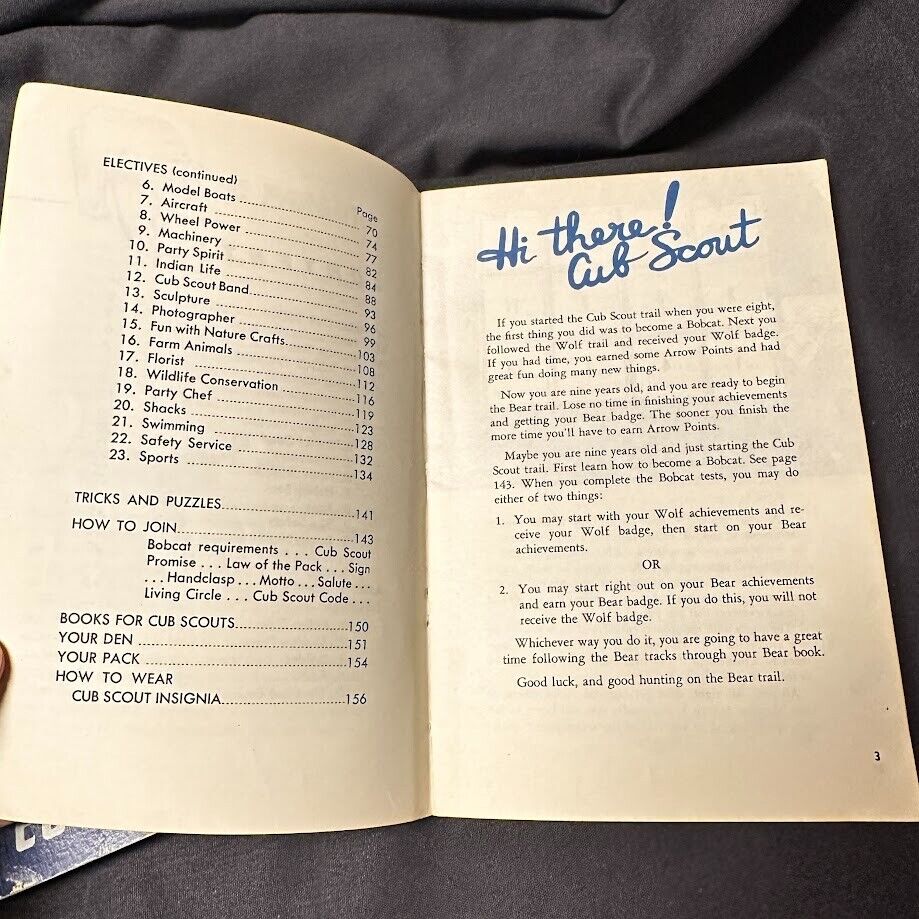 ELECTIVES (continued)
Page
6. Model Boats 70
7. Aircraft 74
8. Wheel Power 77
9. Machinery 82
10. Party Spirit 84
11. Indian Life 88
12. Cub Scout Band 93
13. Sculpture 96
14. Photographer 99
15. Fun with Nature Crafts 103
16. Farm Animals 108
17. Florist 112
18. Wildlife Conservation 116
19. Party Chef 119
20. Shacks 123
21. Swimming 128
22. Safety Service 132
23. Sports 134
TRICKS AND PUZZLES 141
HOW TO JOIN 143
Bobcat requirements . . . Cub Scout
Promise . . . Law of the Pack . . . Sign
. . . Handclasp . . . Motto . . . Salute . . .
Living Circle . . . Cub Scout Code . . .
BOOKS FOR CUB SCOUTS 150
YOUR DEN 151
YOUR PACK 154
HOW TO WEAR
CUB SCOUT INSIGNIA 156
Hi there!
Cub Scout
If you started the Cub Scout trail when you were eight,
the first thing you did was to become a Bobcat. Next you
followed the Wolf trail and received your Wolf badge.
If you had time, you earned some Arrow Points and had
great fun doing many new things.
Now you are nine years old, and you are ready to begin
the Bear trail. Lose no time in finishing your achievements
and getting your Bear badge. The sooner you finish the
more time you'll have to earn Arrow Points.
Maybe you are nine years old and just starting the Cub
Scout trail. First learn how to become a Bobcat. See page
143. When you complete the Bobcat tests, you may do
either of two things:
1. You may start with your Wolf achievements and re-
ceive your Wolf badge, then start on your Bear
achievements.
OR
2. You may start right out on your Bear achievements
and earn your Bear badge. If you do this, you will not
receive the Wolf badge.
Whichever way you do it, you are going to have a great
time following the Bear tracks through your Bear book.
Good luck, and good hunting on the Bear trail.
3